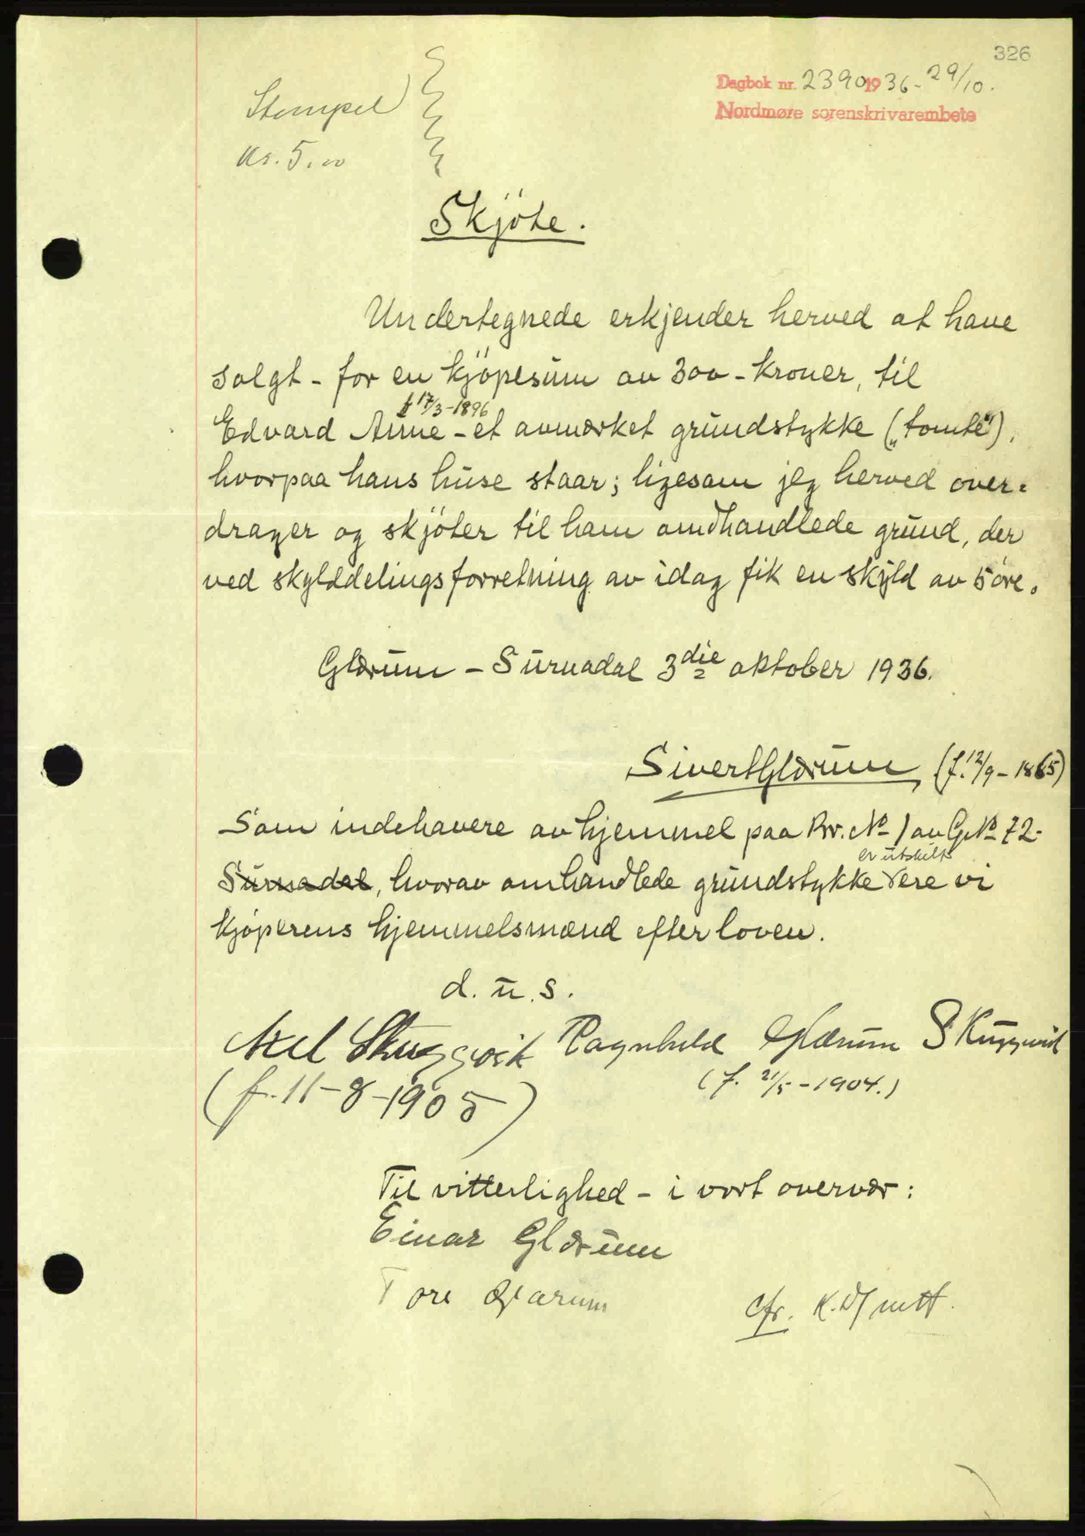 326
Dagbok nr. 2390 1936 - 29/10.
Nordmøre sorenskrivarembete
Stempel
Kr. 5.00
Skjöte.
Undertegnede erkjender herved at have
solgt - for en kjöpesum av 300 - kroner, til
f 17/3-1896
Edvard Anne - et avmerket grundstykke („tomte"),
hvorpaa hans huse staar; ligesom jeg herved over-
drager og skjöter til ham omhandlede grund, der
ved skylddelingsforretning av idag fik en skyld av 5 öre.
Glærum - Surnadal 3die oktober 1936.
Sivert Glærum (f. 12/9 - 1865)
Som indehavere av hjemmel paa Br. No 1 av G.No 72-
er utskilt
Surnadal, hvorav omhandlede grundstykke ere vi
kjöperens hjemmelsmænd efter loven.
d. u. s.
Axel Skuggvik Ragnhild Glærum Skuggvik
(f. 11-8-1905) (f. 21/5 - 1904.)
Til vitterlighed - i vort overvær:
Einar Glærum
Tore Glærum